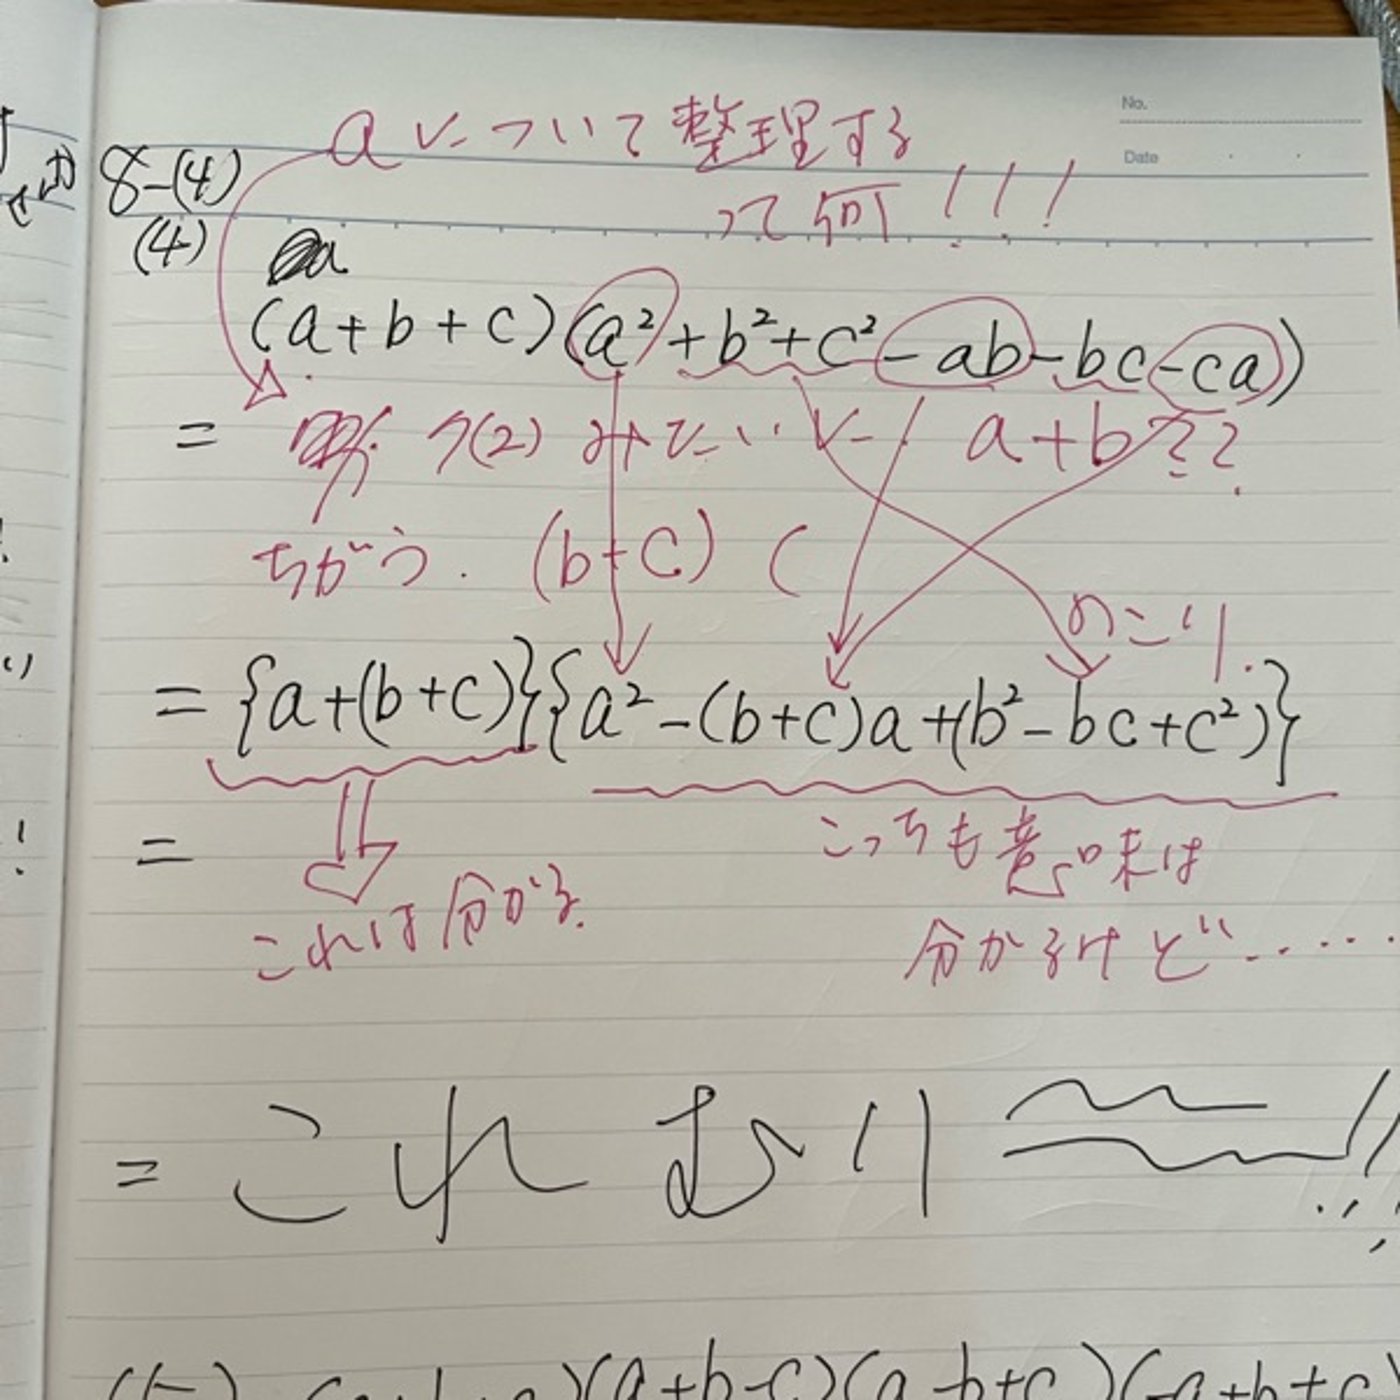 No.
Date
aについて整理する
って何!!!
8-(4)
(4) a
(a+b+c)(a²+b²+c²-ab-bc-ca)
= 7(2) みたいに! a+b??
ちがう. (b+c) (
のこり.
={a+(b+c)}{a²-(b+c)a+(b²-bc+c²)}
=
これは分かる.
こっちも意味は
分かるけど……
= これむり〜!!